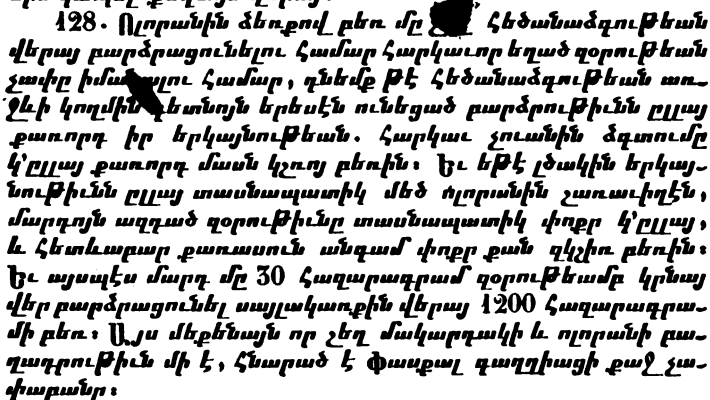 128. Ոլորանին ձեռքով բեռ մը հեծանաձգութեան
վերայ բարձրացունելու համար հարկաւոր եղած զօրութեան
չափը իմանալու համար, դնեմք թէ հեծանաձգութեան առ-
ջևի կողմին գետնոյն երեսէն ունեցած բարձրութիւնն ըլլայ
քառորդ իր երկայնութեան. հարկաւ չուանին ձգտումը
կ՚ըլլայ քառորդ մասն կշռոյ բեռին։ Եւ եթէ լծակին երկայ-
նութիւնն ըլլայ տասնապատիկ մեծ ոլորանին շառաւիղէն,
մարդոյն ազդած զօրութիւնը տասնապատիկ փոքր կ՚ըլլայ,
և հետևաբար քառասուն անգամ փոքր քան զկշիռ բեռին։
Եւ այսպէս մարդ մը 30 հազարագրամ զօրութեամբ կրնայ
վեր բարձրացունել սայլակառքին վերայ 1200 հազարագրա-
մի բեռ։ Այս մեքենայն որ չեղ մակարդակի և ոլորանի բա-
ղադրութիւն մի է, հնարած է Փասքալ գաղղիացի քաջ չա-
փաբանը։